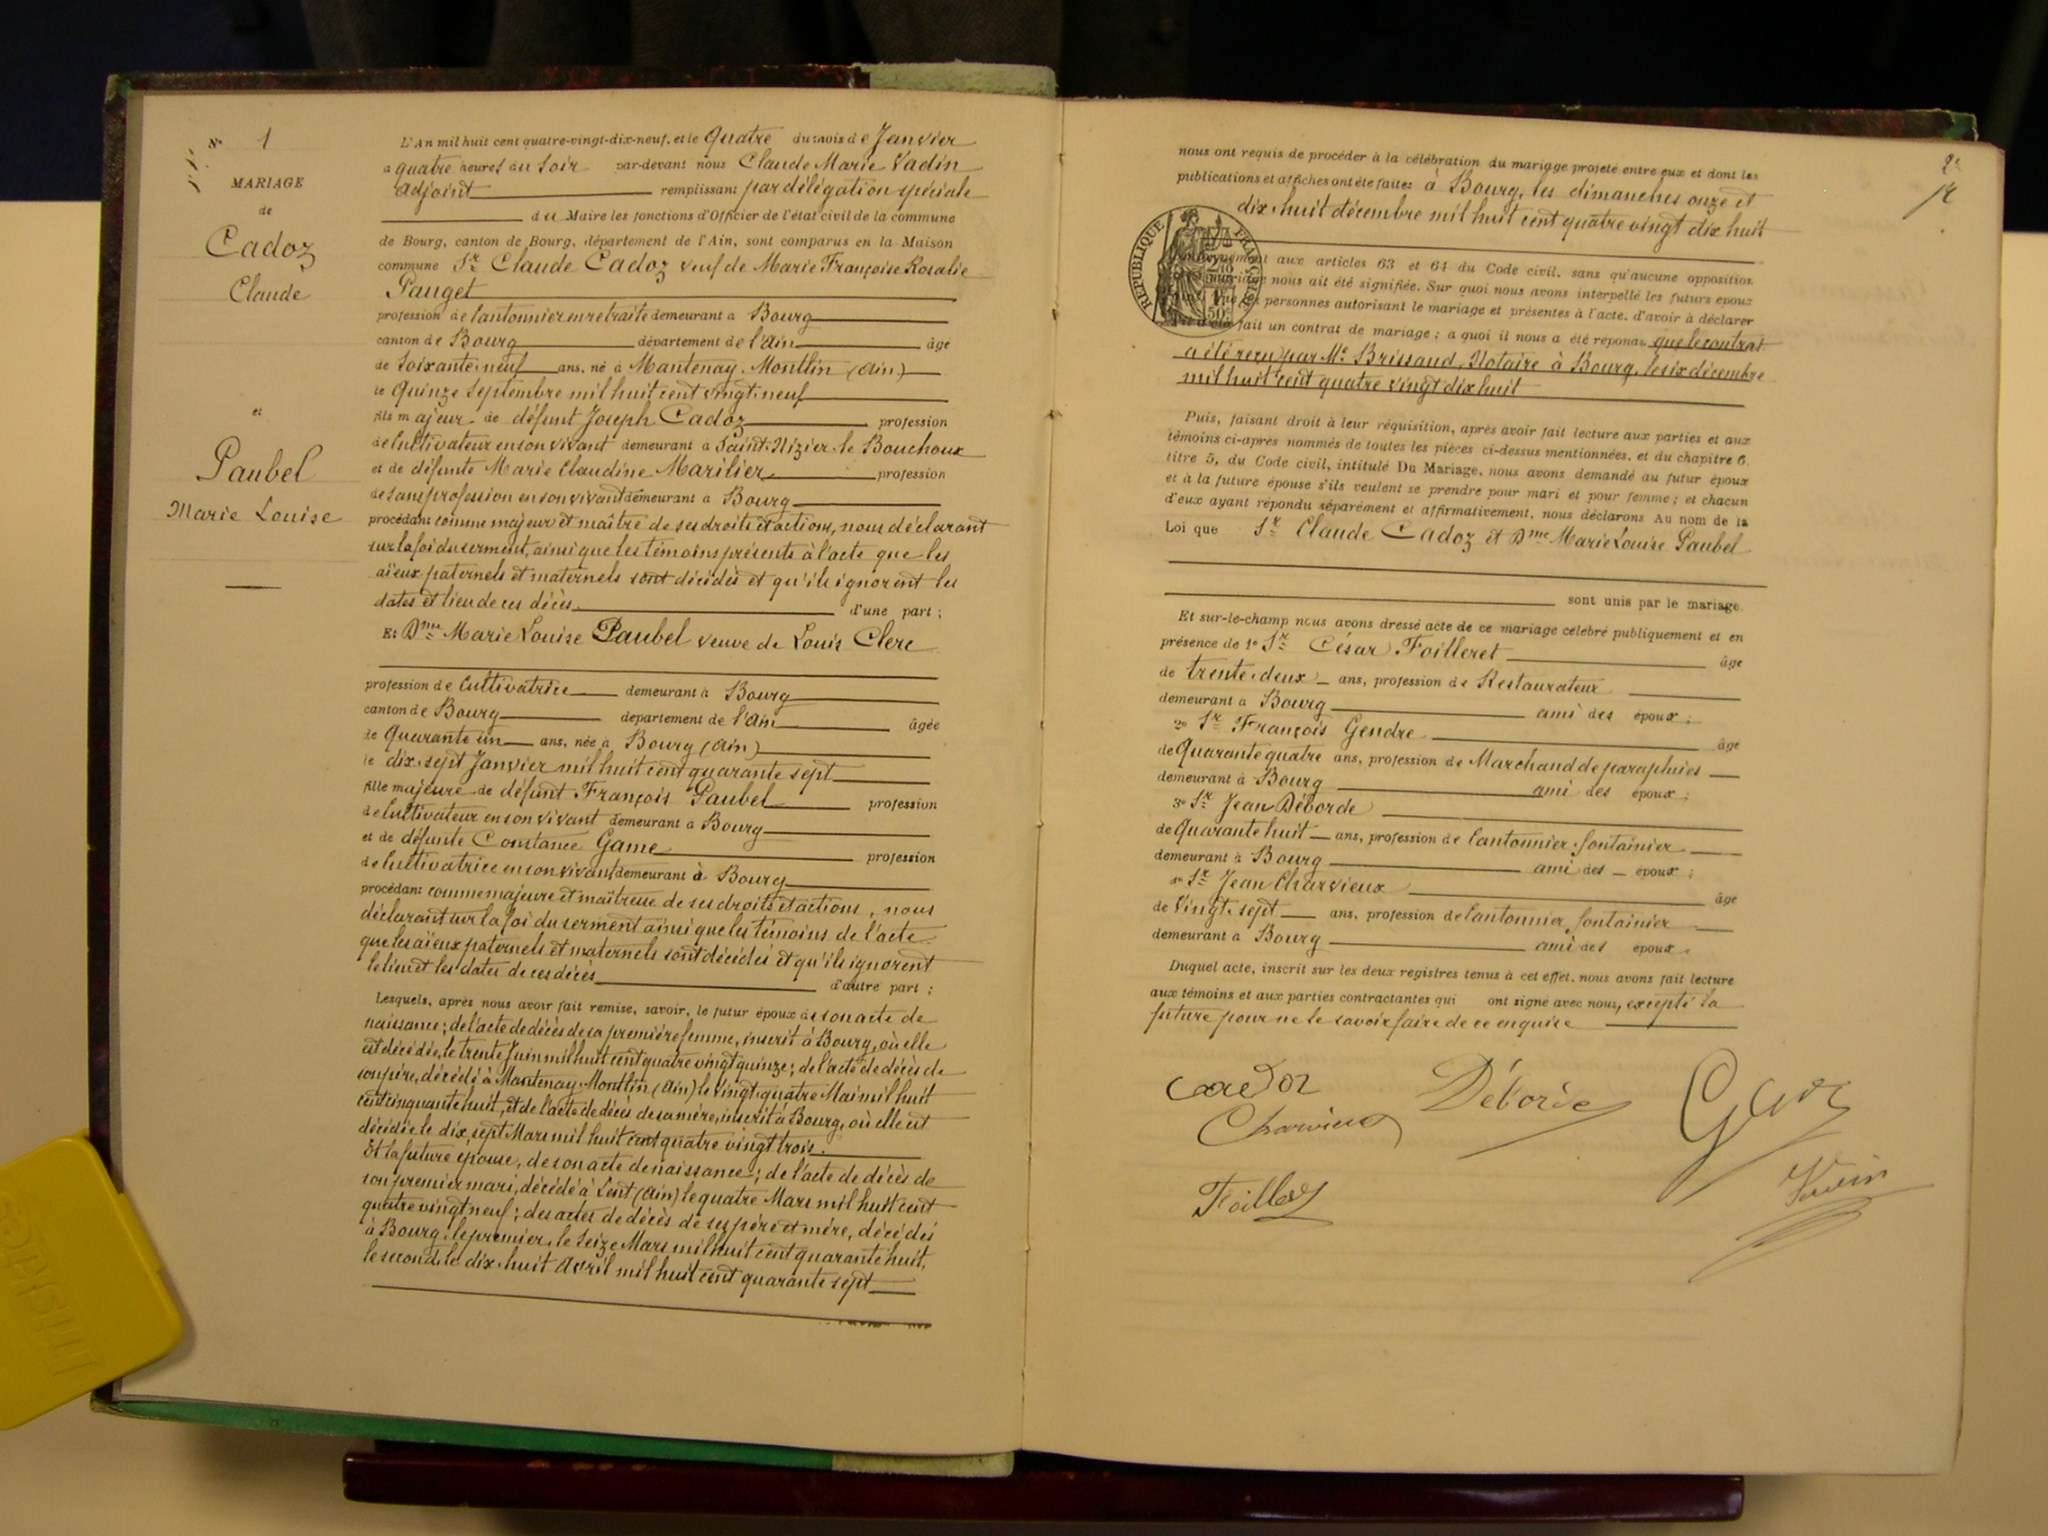 N° 1
MARIAGE
de
Cadoz
Claude
et
Paubel
Marie Louise
L'An mil huit cent quatre-vingt-dix-neuf, et le Quatre du mois de Janvier
a quatre heures du Soir par-devant nous Claude Marie Vadin
adjoint remplissant par délégation spéciale
du Maire les fonctions d'Officier de l'état civil de la commune
de Bourg, canton de Bourg, département de l'Ain, sont comparus en la Maison
commune Sr Claude Cadoz veuf de Marie Françoise Rosalie
Pauget
profession de Cantonnier en retraite demeurant à Bourg
canton de Bourg département de l'Ain âgé
de Soixante neuf ans, né à Mantenay-Montlin (Ain)
le Quinze Septembre mil huit cent vingt-neuf
fils majeur de défunt Joseph Cadoz profession
de Cultivateur en son vivant demeurant à Saint-Nizier-le-Bouchoux
et de défunte Marie Claudine Marilier profession
de sans profession en son vivant demeurant à Bourg
procédant comme majeur et maître de ses droits et actions, nous déclarant
sur la foi du serment, ainsi que les témoins présents à l'acte que les
aïeux paternels et maternels sont décédés et qu'ils ignorent les
dates et lieu de ces décès d'une part ;
Et Dme Marie Louise Paubel veuve de Louis Clerc
profession de Cultivatrice demeurant à Bourg
canton de Bourg département de l'Ain âgée
de Quarante un ans, née à Bourg (Ain)
le dix-sept Janvier mil huit cent quarante sept
fille majeure de défunt François Paubel profession
de Cultivateur en son vivant demeurant à Bourg
et de défunte Constance Game profession
de Cultivatrice en son vivant demeurant à Bourg
procédant comme majeure et maîtresse de ses droits et actions, nous
déclarant sur la foi du serment ainsi que les témoins de l'acte
que les aïeux paternels et maternels sont décédés et qu'ils ignorent
le lieu et les dates de ces décès d'autre part ;
Lesquels, après nous avoir fait remise, savoir, le futur époux de son acte de
naissance ; de l'acte de décès de sa première femme, inscrit à Bourg, où elle
est décédée, le trente Juin mil huit cent quatre vingt quinze ; de l'acte de décès de
son père, décédé à Mantenay-Montlin (Ain) le vingt-quatre Mai mil huit
cent cinquante huit, et de l'acte de décès de sa mère, inscrit à Bourg, où elle est
décédée le dix-sept Mars mil huit cent quatre vingt trois.
Et la future épouse, de son acte de naissance ; de l'acte de décès de
son premier mari, décédé à Lent (Ain) le quatre Mars mil huit cent
quatre vingt neuf ; des actes de décès de ses père et mère, décédés
à Bourg, le premier, le Seize Mars mil huit cent quarante huit,
le second, le dix-huit Avril mil huit cent quarante sept
nous ont requis de procéder à la célébration du mariage projeté entre eux et dont les
publications et affiches ont été faites à Bourg, les dimanches onze et
dix-huit décembre mil huit cent quatre vingt dix huit
RÉPUBLIQUE FRANÇAISE
aux articles 63 et 64 du Code civil, sans qu'aucune opposition
mariage nous ait été signifiée. Sur quoi nous avons interpellé les futurs époux
personnes autorisant le mariage et présentes à l'acte, d'avoir à déclarer
fait un contrat de mariage ; a quoi il nous a été répondu que le contrat
a été reçu par Me Brissaud, Notaire à Bourg, le six décembre
mil huit cent quatre vingt dix huit
Puis, faisant droit à leur réquisition, après avoir fait lecture aux parties et aux
témoins ci-après nommés de toutes les pièces ci-dessus mentionnées, et du chapitre 6,
titre 5, du Code civil, intitulé Du Mariage, nous avons demandé au futur époux
et à la future épouse s'ils veulent se prendre pour mari et pour femme ; et chacun
d'eux ayant répondu séparément et affirmativement, nous déclarons Au nom de la
Loi que Sr Claude Cadoz et Dme Marie Louise Paubel
sont unis par le mariage.
Et sur-le-champ nous avons dressé acte de ce mariage célébré publiquement et en
présence de 1° Sr César Foilleret âgé
de trente-deux ans, profession de Restaurateur
demeurant à Bourg ami des époux ;
2° Sr François Gendre âgé
de Quarante quatre ans, profession de Marchand de parapluies
demeurant à Bourg ami des époux ;
3° Sr Jean Déborde
de Quarante huit ans, profession de Cantonnier-fontainier
demeurant à Bourg ami des époux ;
4° Sr Jean Charvieux âgé
de Vingt-sept ans, profession de Cantonnier fontainier
demeurant à Bourg ami des époux.
Duquel acte, inscrit sur les deux registres tenus à cet effet, nous avons fait lecture
aux témoins et aux parties contractantes qui ont signé avec nous, excepté la
future pour ne le savoir faire de ce enquise
Cadoz
Déborde
Charvieux
Foilleret
Vadin